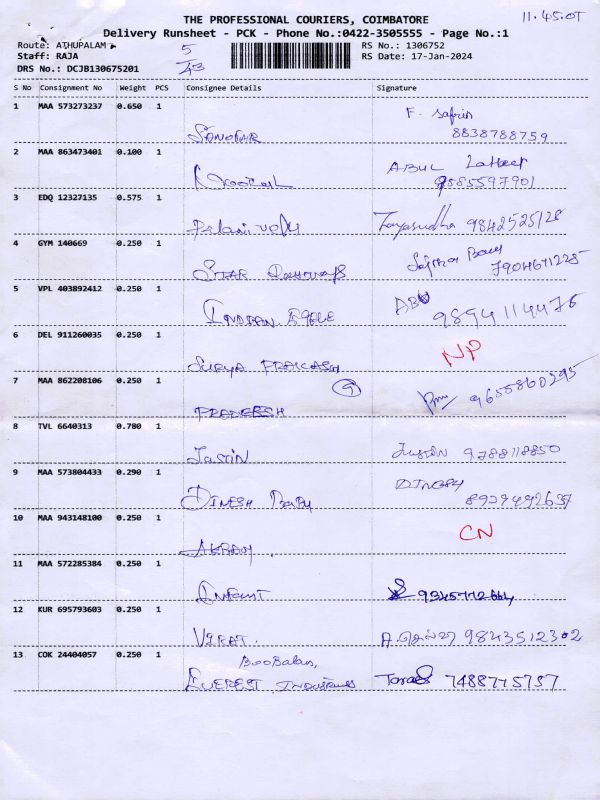 THE PROFESSIONAL COURIERS, COIMBATORE
11.45.OT
Delivery Runsheet - PCK - Phone No.:0422-3505555 - Page No.:1
Route: ATHUPALAM
5/43
RS No.: 1306752
Staff: RAJA
RS Date: 17-Jan-2024
DRS No.: DCJB130675201
S No Consignment No Weight PCS Consignee Details Signature
1 MAA 573273237 0.650 1
F. Safrin
SANOFAR 8838788759
2 MAA 863473401 0.100 1
ABUL Latheef
9585597901
3 EDQ 12327135 0.575 1
Palanivelu Jayasudha 9842525128
4 GYM 140669 0.250 1
STAR 7904671225
5 VPL 403892412 0.250 1
INDIAN EAGLE 9894114476
6 DEL 911260035 0.250 1
SURYA PRAKASH NP
7 MAA 862208106 0.250 1
9
PRANESH 9655860295
8 TVL 6640313 0.780 1
Jastin Justin 9788118850
9 MAA 573804433 0.290 1
DINESH BABY DINESH
8939492637
10 MAA 943148100 0.250 1
CN
AKRAM.
11 MAA 572285384 0.250 1
Infant 9345772664
12 KUR 695793603 0.250 1
VIRAT. 9843512302
13 COK 24404057 0.250 1
BooBalan,
EVEREST Industries 7488775757